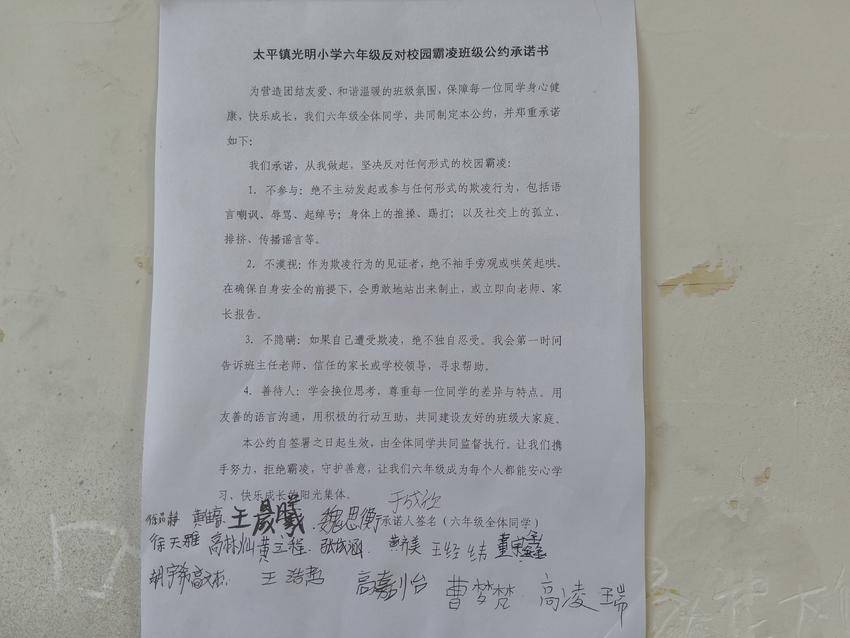 太平镇光明小学六年级反对校园霸凌班级公约承诺书
为营造团结友爱、和谐温暖的班级氛围，保障每一位同学身心健
康，快乐成长，我们六年级全体同学，共同制定本公约，并郑重承诺
如下：
我们承诺，从我做起，坚决反对任何形式的校园霸凌：
1. 不参与：绝不主动发起或参与任何形式的欺凌行为，包括语
言嘲讽、辱骂、起绰号；身体上的推搡、踢打；以及社交上的孤立、
排挤、传播谣言等。
2. 不漠视：作为欺凌行为的见证者，绝不袖手旁观或哄笑起哄。
在确保自身安全的前提下，会勇敢地站出来制止，或立即向老师、家
长报告。
3. 不隐瞒：如果自己遭受欺凌，绝不独自忍受。我会第一时间
告诉班主任老师、信任的家长或学校领导，寻求帮助。
4. 善待人：学会换位思考，尊重每一位同学的差异与特点。用
友善的语言沟通，用积极的行动互助，共同建设友好的班级大家庭。
本公约自签署之日起生效，由全体同学共同监督执行。让我们携
手努力，拒绝霸凌，守护善意，让我们六年级成为每个人都能安心学
习、快乐成长的阳光集体。
于成欣
王晨曦 魏思衡 承诺人签名（六年级全体同学）
徐天雅 高林灿 黄立程 张成涵 王经纬
胡宇东 王浩哲 高嘉怡 曹梦梵 高凌瑞